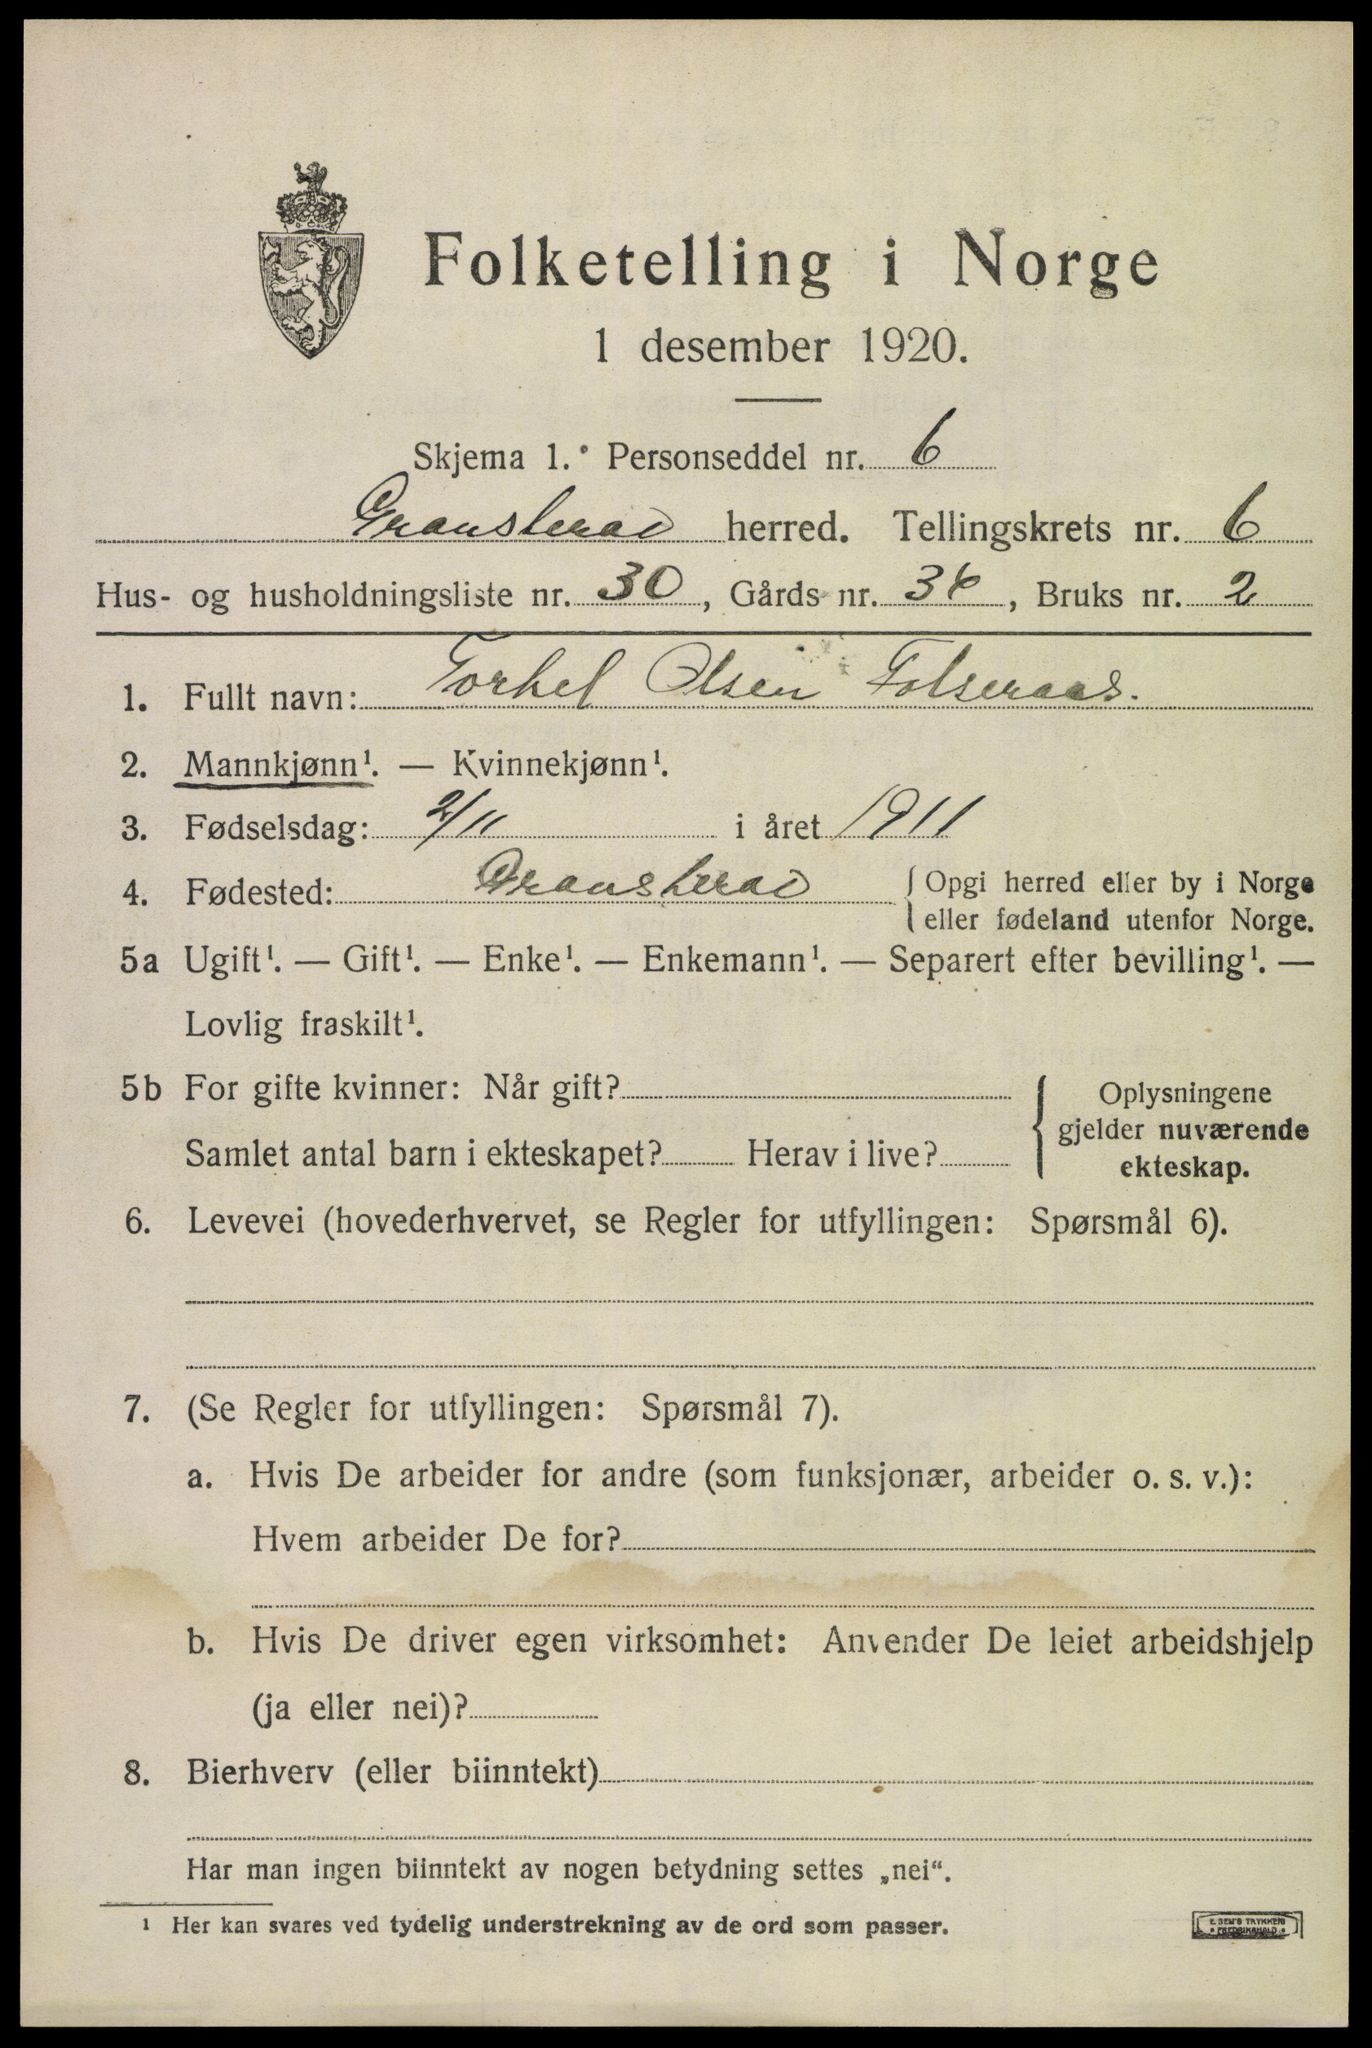 Folketelling i Norge
1 desember 1920.
Skjema 1. Personseddel nr. 6
Gransherad herred. Tellingskrets nr. 6
Hus- og husholdningsliste nr. 30, Gårds nr. 36, Bruks nr. 2
1. Fullt navn: Torkel Olsen Folseraas.
2. Mannkjønn¹. — Kvinnekjønn¹.
3. Fødselsdag: 2/11 i året 1911
4. Fødested: Gransherad { Opgi herred eller by i Norge
eller fødeland utenfor Norge.
5a Ugift¹. — Gift¹. — Enke¹. — Enkemann¹. — Separert efter bevilling¹. —
Lovlig fraskilt¹.
5b For gifte kvinner: Når gift?
Samlet antal barn i ekteskapet? Herav i live?
{ Oplysningene
gjelder nuværende
ekteskap.
6. Levevei (hovederhvervet, se Regler for utfyllingen: Spørsmål 6).
7. (Se Regler for utfyllingen: Spørsmål 7).
a. Hvis De arbeider for andre (som funksjonær, arbeider o. s. v.):
Hvem arbeider De for?
b. Hvis De driver egen virksomhet: Anvender De leiet arbeidshjelp
(ja eller nei)?
8. Bierhverv (eller biinntekt)
Har man ingen biinntekt av nogen betydning settes „nei“.
¹ Her kan svares ved tydelig understrekning av de ord som passer.
E. SEM'S TRYKKERI
FREDRIKSHALD